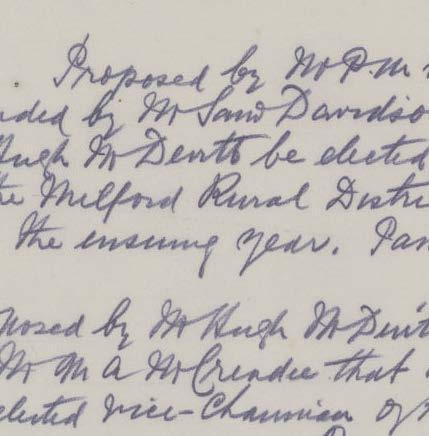 Proposed by Mr P. M
nded by Mr Saml Davidso
Hugh McDevitt be elected
the Milford Rural Distri
the ensuing year. Pas
posed by Mr Hugh McDevit
Mr M A McCreadie that
elected Vice-Chairman of